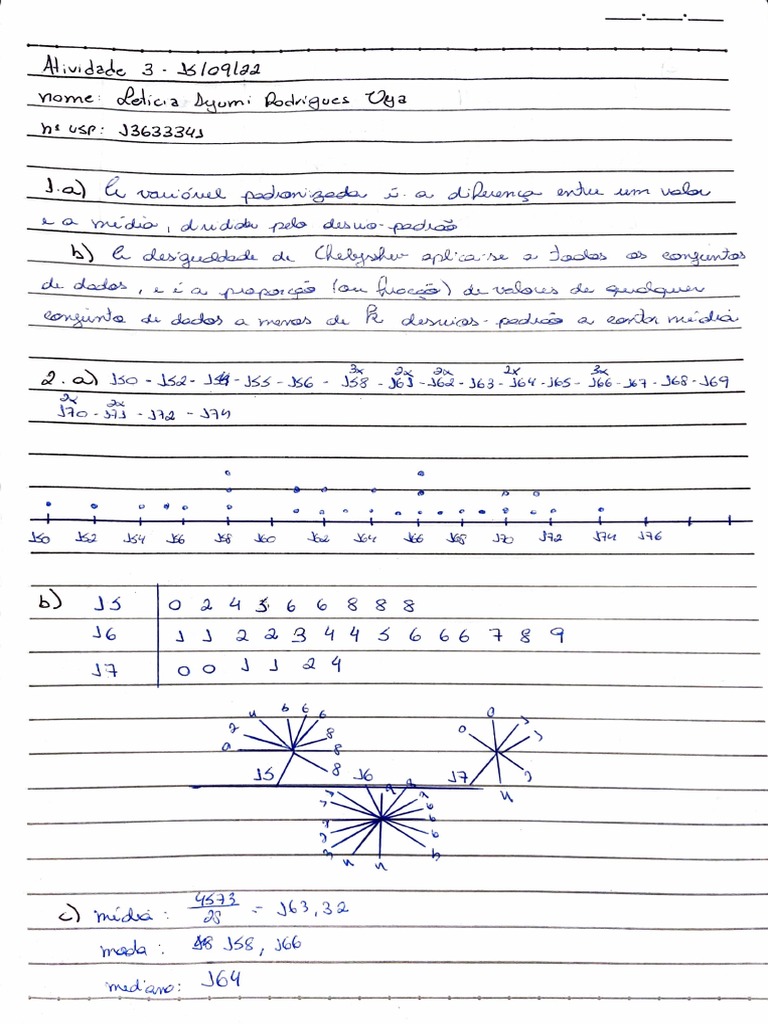 Atividade 3 - 15/09/22
nome: Letícia Ayumi Rodrigues
nº USP: 13633341
1.a) A variável padronizada é a diferença entre um valor
e a média, dividida pelo desvio-padrão
b) A desigualdade de Chebyshev aplica-se a todos os conjuntos
de dados, e é a proporção (ou fração) de valores de qualquer
conjunto de dados a menos de K desvios-padrão a contr média
3x 2x 2x 2x 3x
2.a) 150 - 152 - 154 - 155 - 156 - 158 - 161 - 162 - 163 - 164 - 165 - 166 - 167 - 168 - 169
2x 2x
170 - 171 - 172 - 174
150 152 154 156 158 160 162 164 166 168 170 172 174 176
b) 15 | 0 2 4 5 6 6 8 8 8
16 | 1 1 2 2 3 4 4 5 6 6 6 7 8 9
17 | 0 0 1 1 2 4
0 2 4 6 6 6 8 8 8
0 0 1 1 2 4
15 16 17
1 1 2 2 3 4 4 5 6 6 6 7 8 9
c) média: 4573/28 = 163,32
moda: 158, 166
mediano: 164